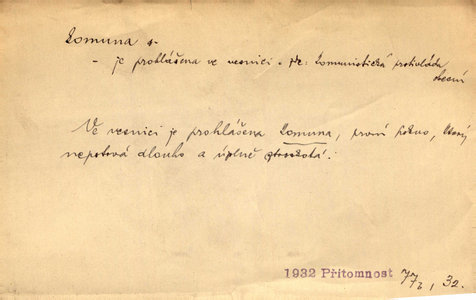 Komuna s.
- je prohlášena ve vesnici. př: komunistická protivláda
obecní
Ve vesnici je prohlášena komuna, první, který
nepotrvá dlouho a úplně ztroskotá.
1932 Přítomnost 77, 32.